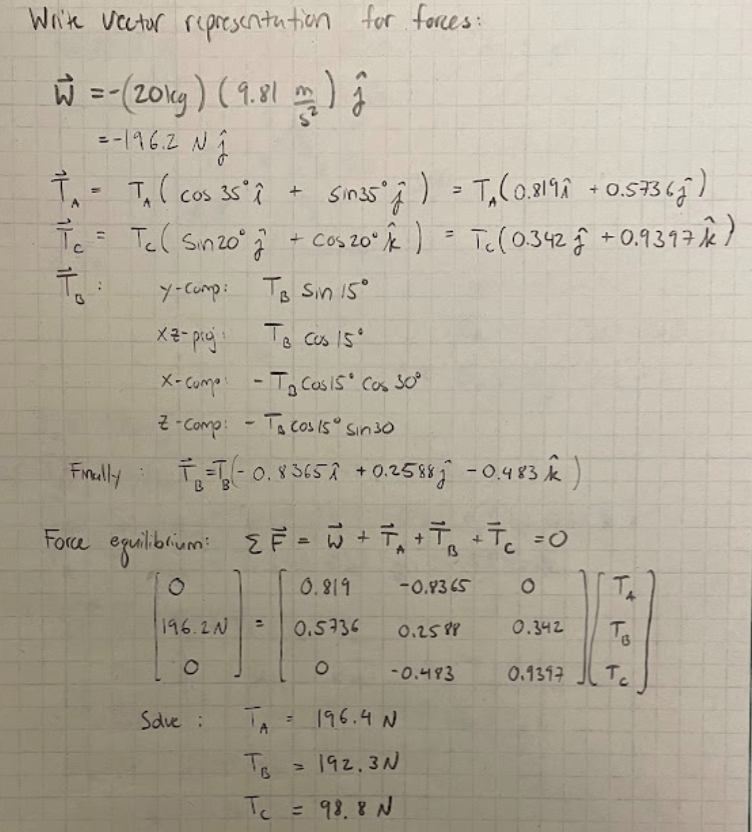 Write vector representation for forces:
W⃗ = -(20kg) (9.81 m/s²) ĵ
= -196.2 N ĵ
T⃗_A = T_A ( cos 35° î + sin 35° ĵ ) = T_A (0.819î + 0.5736ĵ)
T⃗_C = T_C ( sin20° ĵ + cos20° k̂ ) = T_C (0.342 ĵ + 0.9397 k̂)
T⃗_B : y-comp: T_B sin 15°
xz-proj: T_B cos 15°
x-comp: - T_B cos15° cos 30°
z-comp: - T_B cos15° sin30
Finally : T⃗_B = T_B (- 0.8365 î + 0.2588 ĵ - 0.483 k̂ )
Force equilibrium: Σ F⃗ = W⃗ + T⃗_A + T⃗_B + T⃗_C = 0
[ 0 ] [ 0.819 -0.8365 0 ] [ T_A ]
[ 196.2N ] = [ 0.5736 0.2588 0.342 ] [ T_B ]
[ 0 ] [ 0 -0.483 0.9397 ] [ T_C ]
Solve : T_A = 196.4 N
T_B = 192.3 N
T_C = 98.8 N